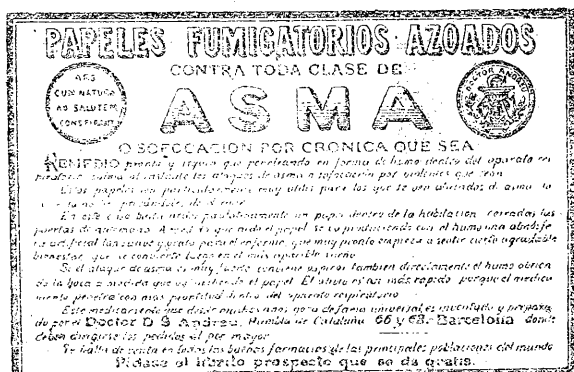 PAPELES FUMIGATORIOS AZOADOS
CONTRA TODA CLASE DE
ARS
CUM NATURA
AD SALUTEM
CONSPIRANT
ASMA
DOCTOR ANDREU
O SOFOCACION POR CRONICA QUE SEA
REMEDIO pronto y seguro que penetrando en forma de humo dentro del aparato res
piratorio calma al instante los ataques de asma o sofocación por violentos que sean
Estos papeles son particularmente muy utiles para los que se ven afectados de asma
En este caso basta
puertas de antemano. A medida que arde el papel se va produciendo con el humo una atmósfe
ra artificial tan suave y grata para el enfermo, que muy pronto empieza a sentir cierto agradable
bienestar que se convierte luego en el mas apacible sueño
Si el ataque de asma es muy fuerte conviene aspirar tambien directamente el humo cerca
de la boca a medida que va ardiendo el papel. El alivio es asi más rápido porque el medica
mento penetra con mas prontitud dentro del aparato respiratorio
Este medicamento que desde muchos años goza de fama universal es inventado y prepara
do por el Doctor D S Andreu, Rambla de Cataluña 66 y 68. Barcelona donde
deben dirigirse los pedidos al por mayor
Se halla de venta en todas las buenas farmacias de las principales poblaciones del mundo
Pídase el librito prospecto que se da gratis.